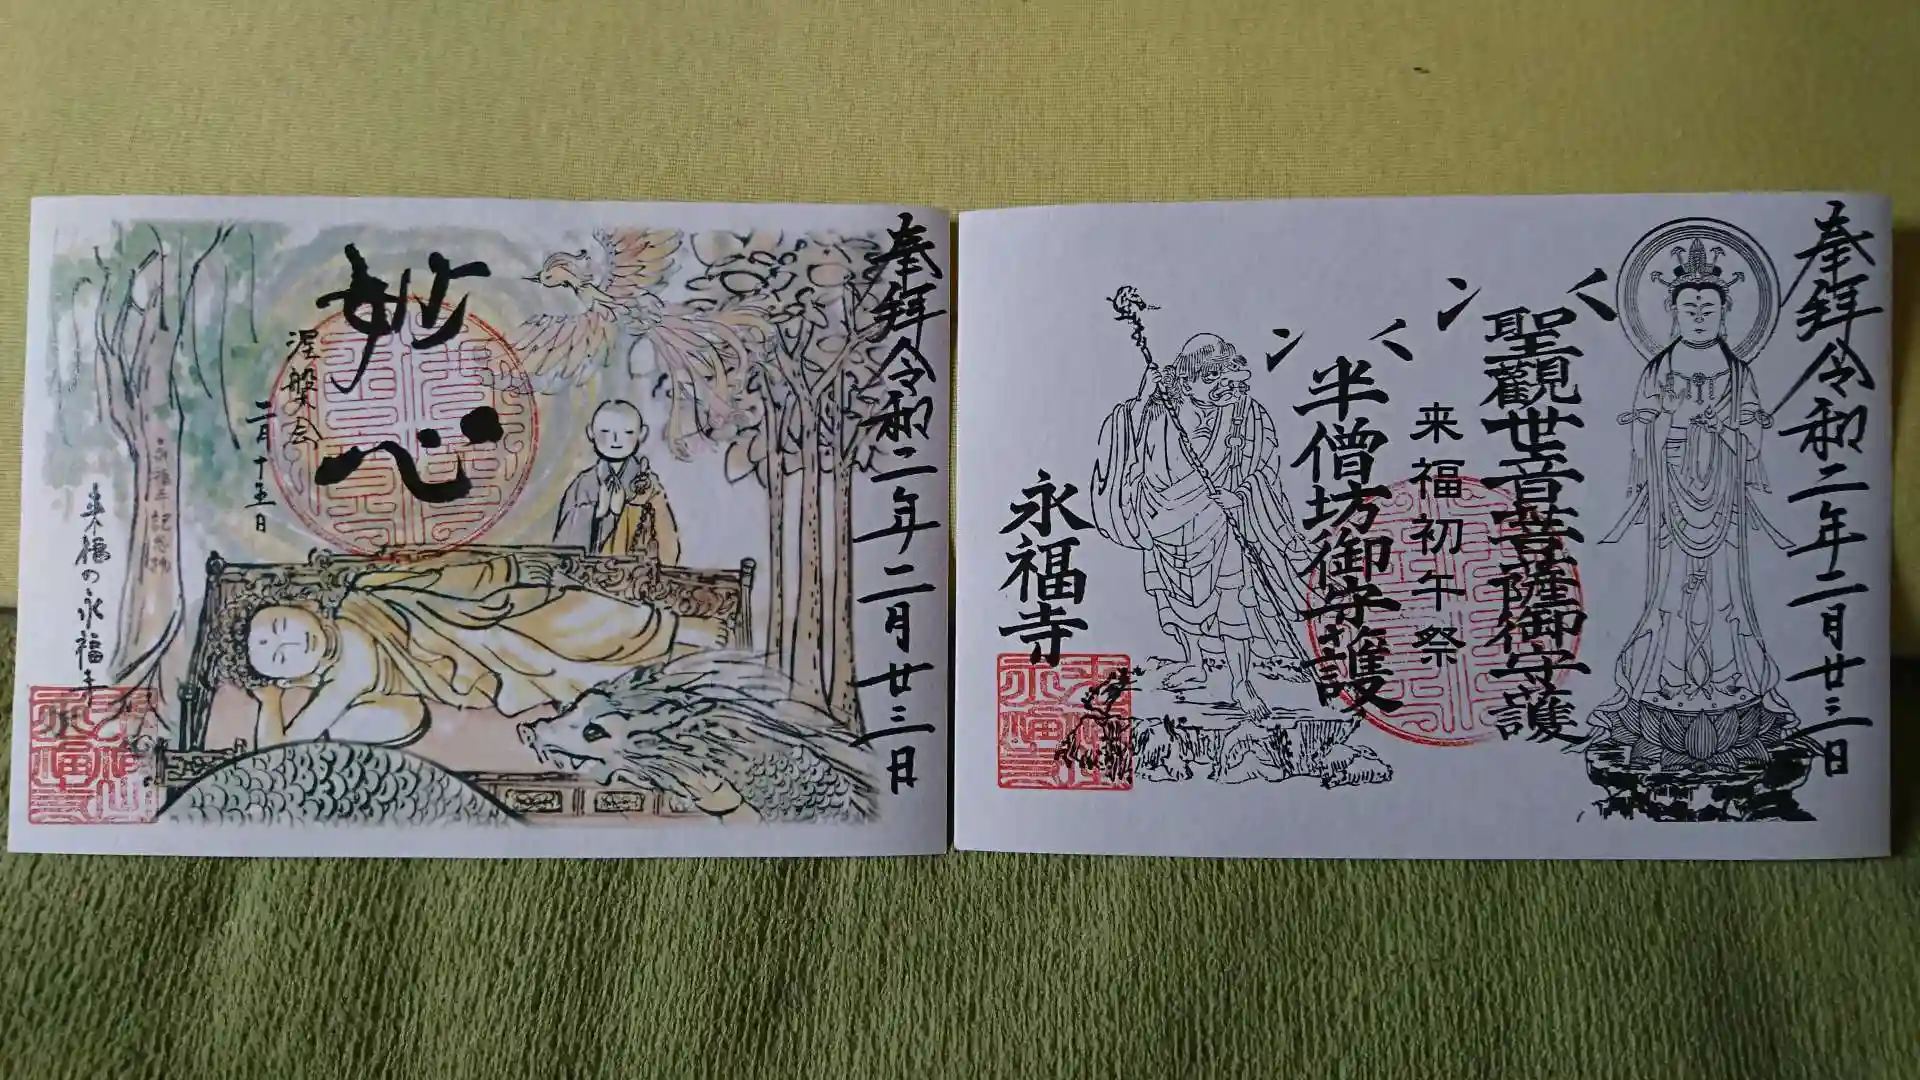 奉拝令和二年二月廿三日
妙心
涅槃会
二月十五日
来福の永福寺
奉拝令和二年二月廿三日
聖觀世音菩薩御守護
来福初午祭
半僧坊御守護
永福寺